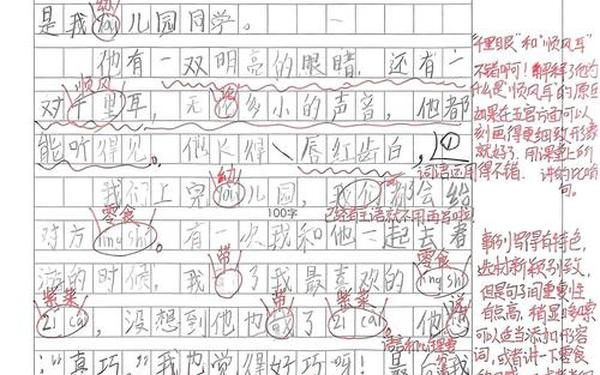 是我 儿园同学。
幼
他有一双明亮的眼睛,还有一
顺风
对千里耳,无论多小的声音,他都
能听得见。他长得、唇红齿白,
词语运用得不错。
我们上完 儿园,我们都会给
幼
已经有主语就不用再写啦
100字
零食
对方ling shi。有一次我和他一起去春
游的时候,我 了我最喜欢的ling shi
带 零食
紫菜 带 紫菜
zi cai,没想到他也 了zi cai,他
:“真巧。”我也觉得好巧呀!是
“千里眼”和“顺风耳”
不错啊!解释了他的
什么是“顺风耳”的原因
如果在五官方面可以
刻画得更细致形象
就好了。用课堂上的
事例写得有特色,
选材新颖别致,
但是句子间重复性
有点高,稍显啰嗦
可以适当添加形容
词,或者讲一下零食